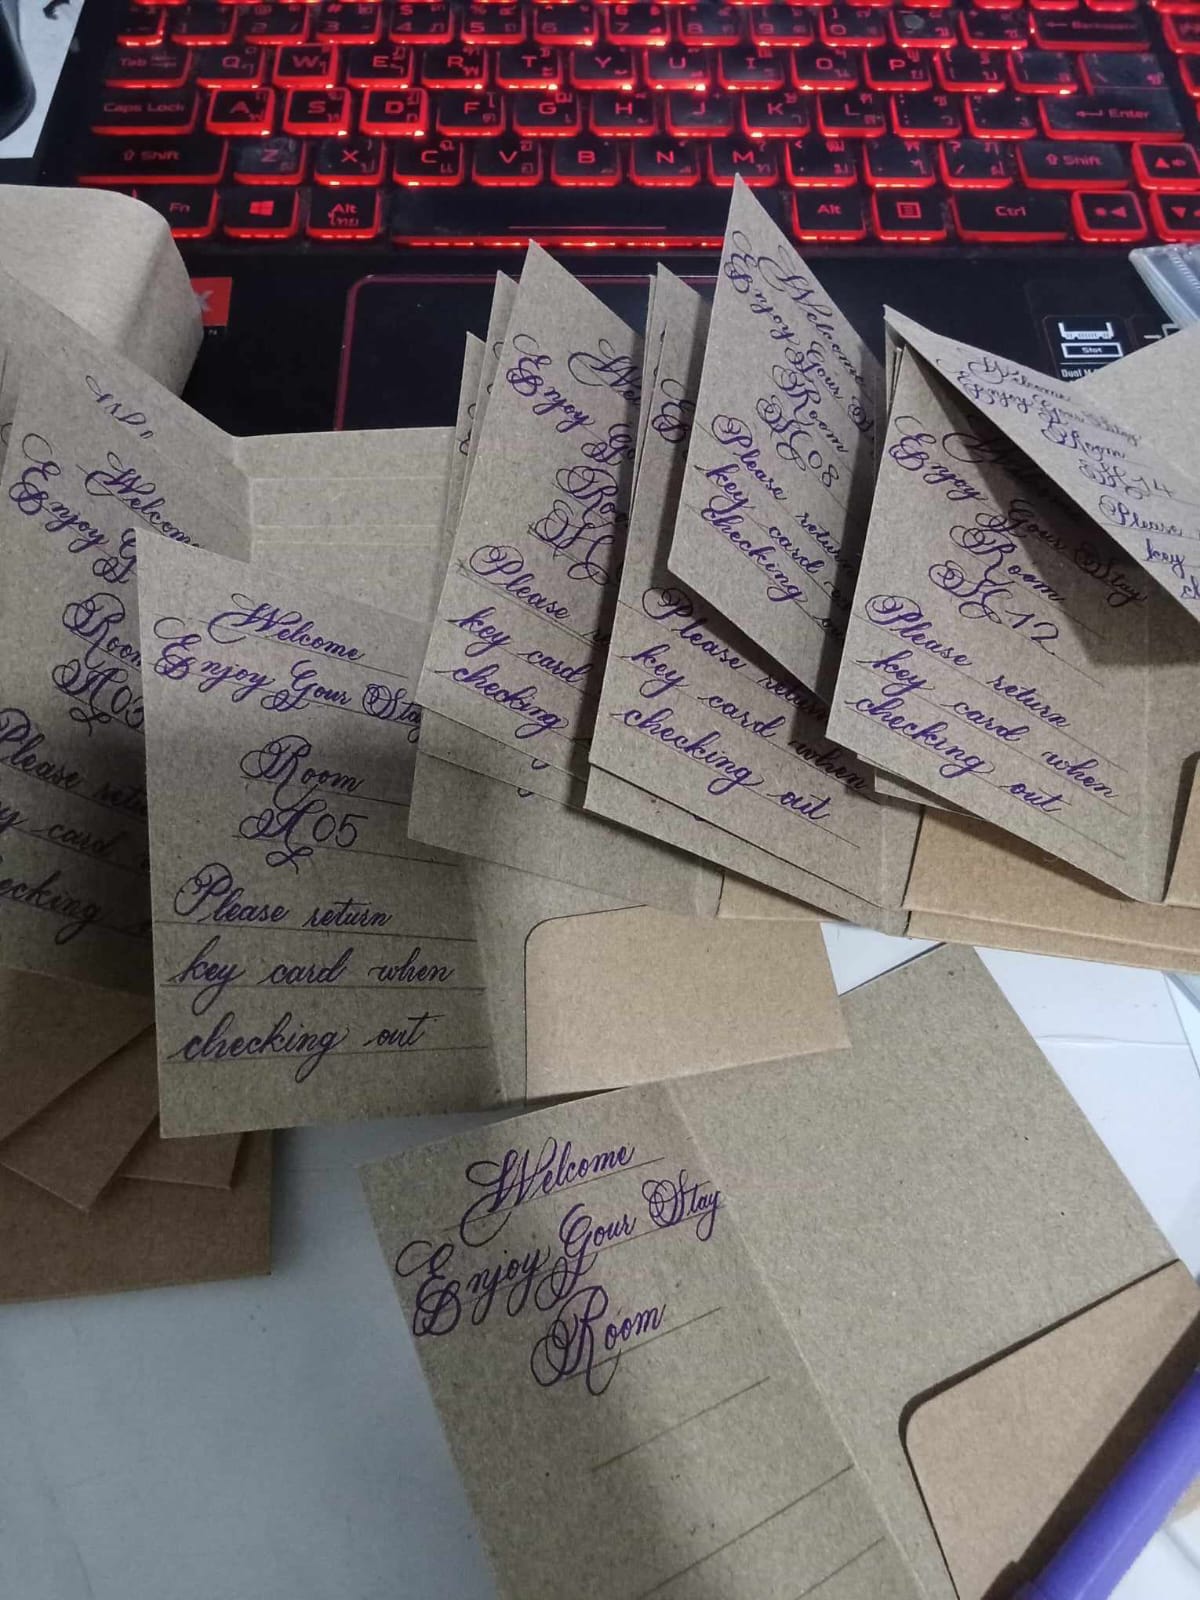 Tab
Q W E R T Y U I O P
Caps Lock A S D F G H J K L Enter
Shift Z X C V B N M Shift
Fn Alt Alt Ctrl
ไทย
Slot
Welcome
Enjoy
Room
Please
card
Welcome
Enjoy Your Stay
Room
H05
Please return
key card when
checking out
Enjoy
Please
key card
checking
Please return
key card when
checking out
Welcome
Enjoy Your
Room
H08
Please return
key card
checking
Enjoy Your Stay
Room
H12
Please return
key card when
checking out
Welcome
Enjoy Your Stay
Room
H14
Please
key
Welcome
Enjoy Your Stay
Room